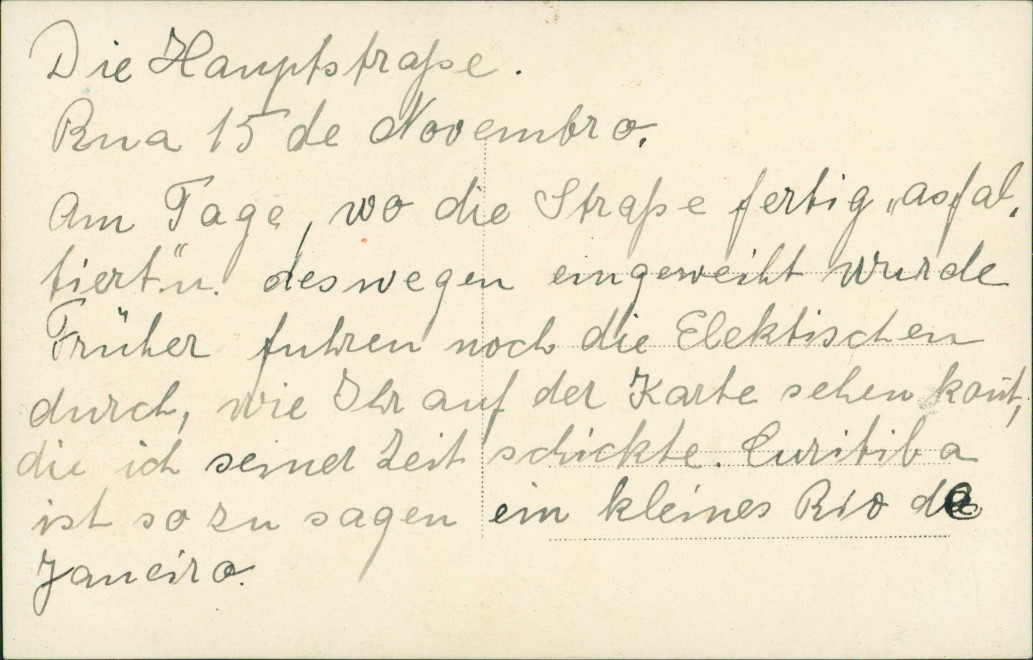 Die Hauptstraße.
Rua 15 de Novembro.
Am Tage, wo die Straße fertig „asfal,
tiert" u. deswegen eingeweiht wurde
Früher fuhren noch die Elektischen
durch, wie Ihr auf der Karte sehen kont,
die ich seiner Zeit schickte. Curitiba
ist so zu sagen ein kleines Rio de
Janeiro.